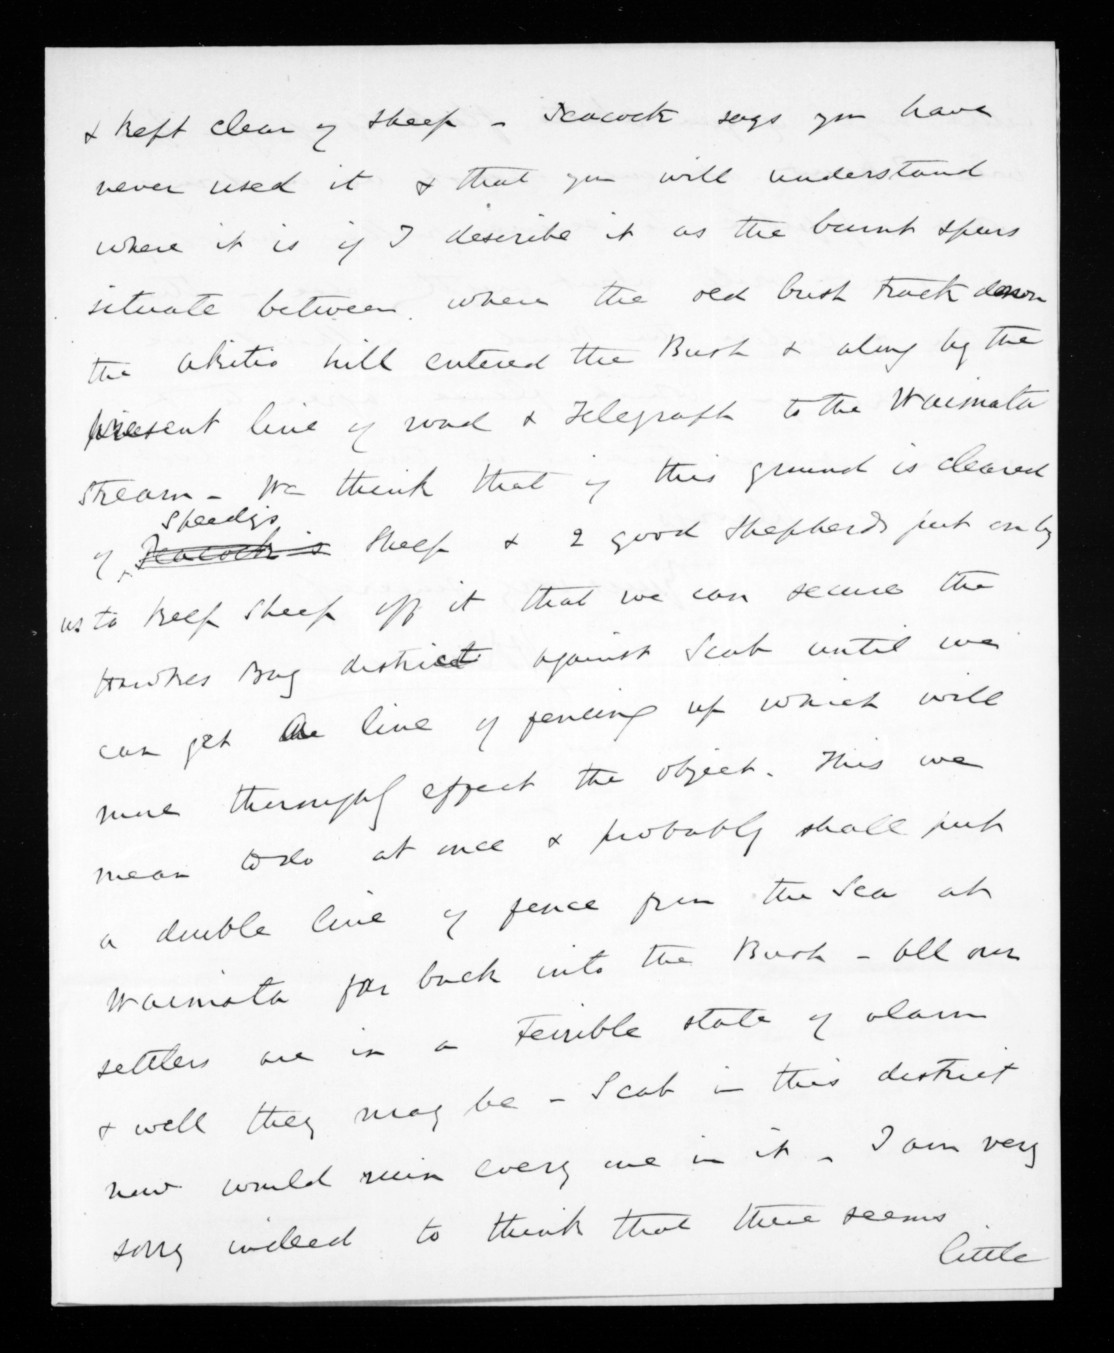 & kept clear of sheep - Peacock says you have
never used it & that you will understand
where it is if I describe it as the burnt spurs
situate between where the old bush track down
the akitio hill entered the Bush & along by the
present line of road & Telegraph to the Waimata
Stream - We think that if this ground is cleared
Speedy's
of Peacock's Sheep & 2 good Shepherds put on by
us to keep Sheep off it that we can secure the
Hawkes Bay district against Scab until we
can get a line of fencing up which will
more thoroughly effect the object. This we
mean to do at once & probably shall put
a double line of fence from the Sea at
Waimata far back into the Bush - all our
settlers are in a Terrible state of alarm
& well they may be - Scab in this district
now would ruin every one in it - I am very
sorry indeed to think that there seems
little